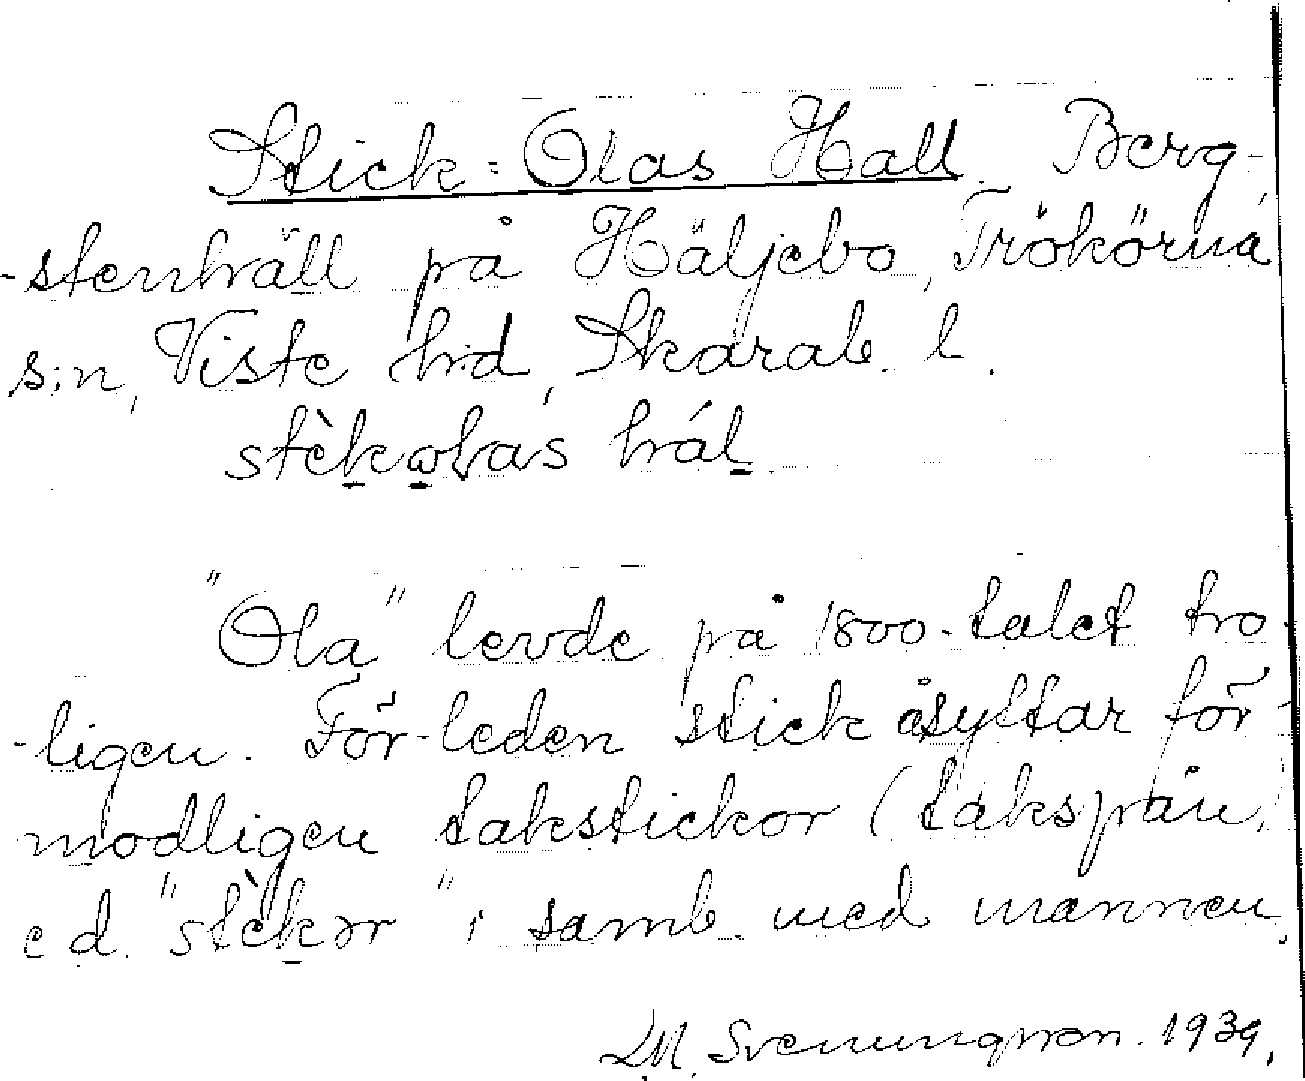 Stick-Olas Hall. Berg-
-stenhäll på Häljebo, Trökörna
s:n, Viste hd, Skarab. l.
stèkωlas hál

"Ola" levde på 1800-talet tro-
-ligen.För-leden stick åsyftar för-
modligen takstickor (takspån,
e d. "stèkər" i samb. med mannen.
D.M. Svenungsson. 1939.